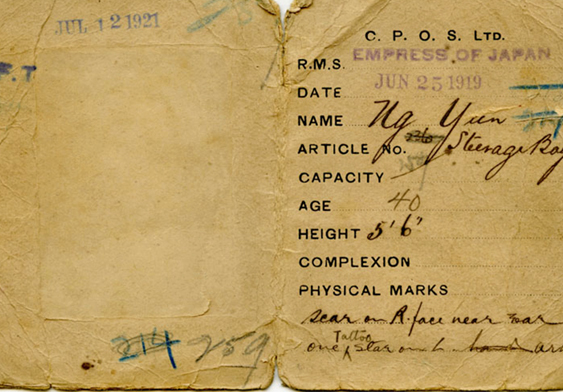 JUL 12 1921
P.T
214 259
C. P. O. S. LTD.
R.M.S. EMPRESS OF JAPAN
DATE JUN 25 1919
NAME Ng Yun
ARTICLE No. Steerage Boy
CAPACITY
AGE 40
HEIGHT 5' 6"
COMPLEXION
PHYSICAL MARKS
scar on R. face near ear
one Tattoo star on L. arm